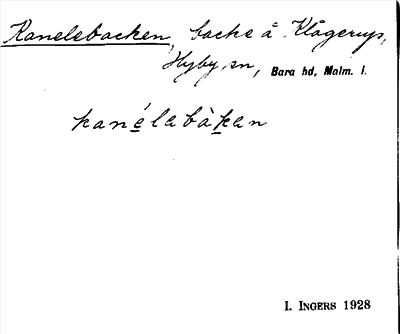 Kanelebacken, backe å Klågerups,
Hyby sn, Bara hd, Malm. l.
kanélabàkan
I. INGERS 1928